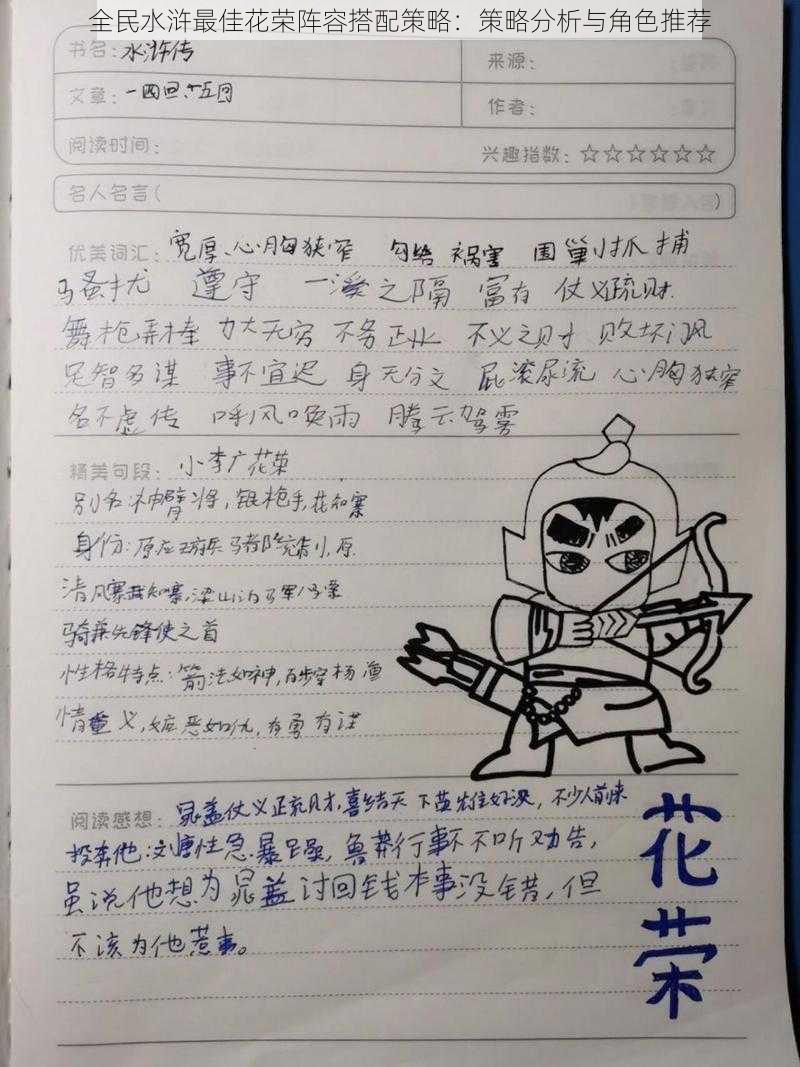 全民水浒最佳花荣阵容搭配策略：策略分析与角色推荐
书名：水浒传
来源：
文章：一四回·十五回
作者：
阅读时间：
兴趣指数：☆☆☆☆☆☆
名人名言（ ）
优美词汇：宽厚、心胸狭窄 勾结 祸害 围剿 抓捕
骚扰 遵守 一溪之隔 富存 仗义疏财
舞枪弄棒 力大无穷 不务正业 不义之财 败坏门风
足智多谋 事不宜迟 身无分文 屁滚尿流 心胸狭窄
名不虚传 呼风唤雨 腾云驾雾
精美句段：小李广花荣
别名：神臂将，银枪手，花知寨
身份：原应 马 ，原
清风寨武知寨，梁山泊马军八 
骑兼先锋使之首
性格特点：箭法如神，百步穿杨，
情重义，嫉恶如仇，有勇有谋
阅读感想：晁盖仗义疏财，喜结天下 好汉，不少人前来
投奔他；刘唐性急暴躁，鲁莽行事不听劝告，
虽说他想为晁盖讨回钱本事没错，但
不该为他惹事。
花荣